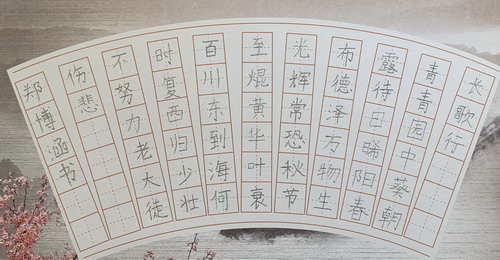 长歌行
青青园中葵朝
露待日晞阳春
布德泽万物生
光辉常恐秋节
至焜黄华叶衰
百川东到海何
时复西归少壮
不努力老大徒
伤悲
郑博涵书